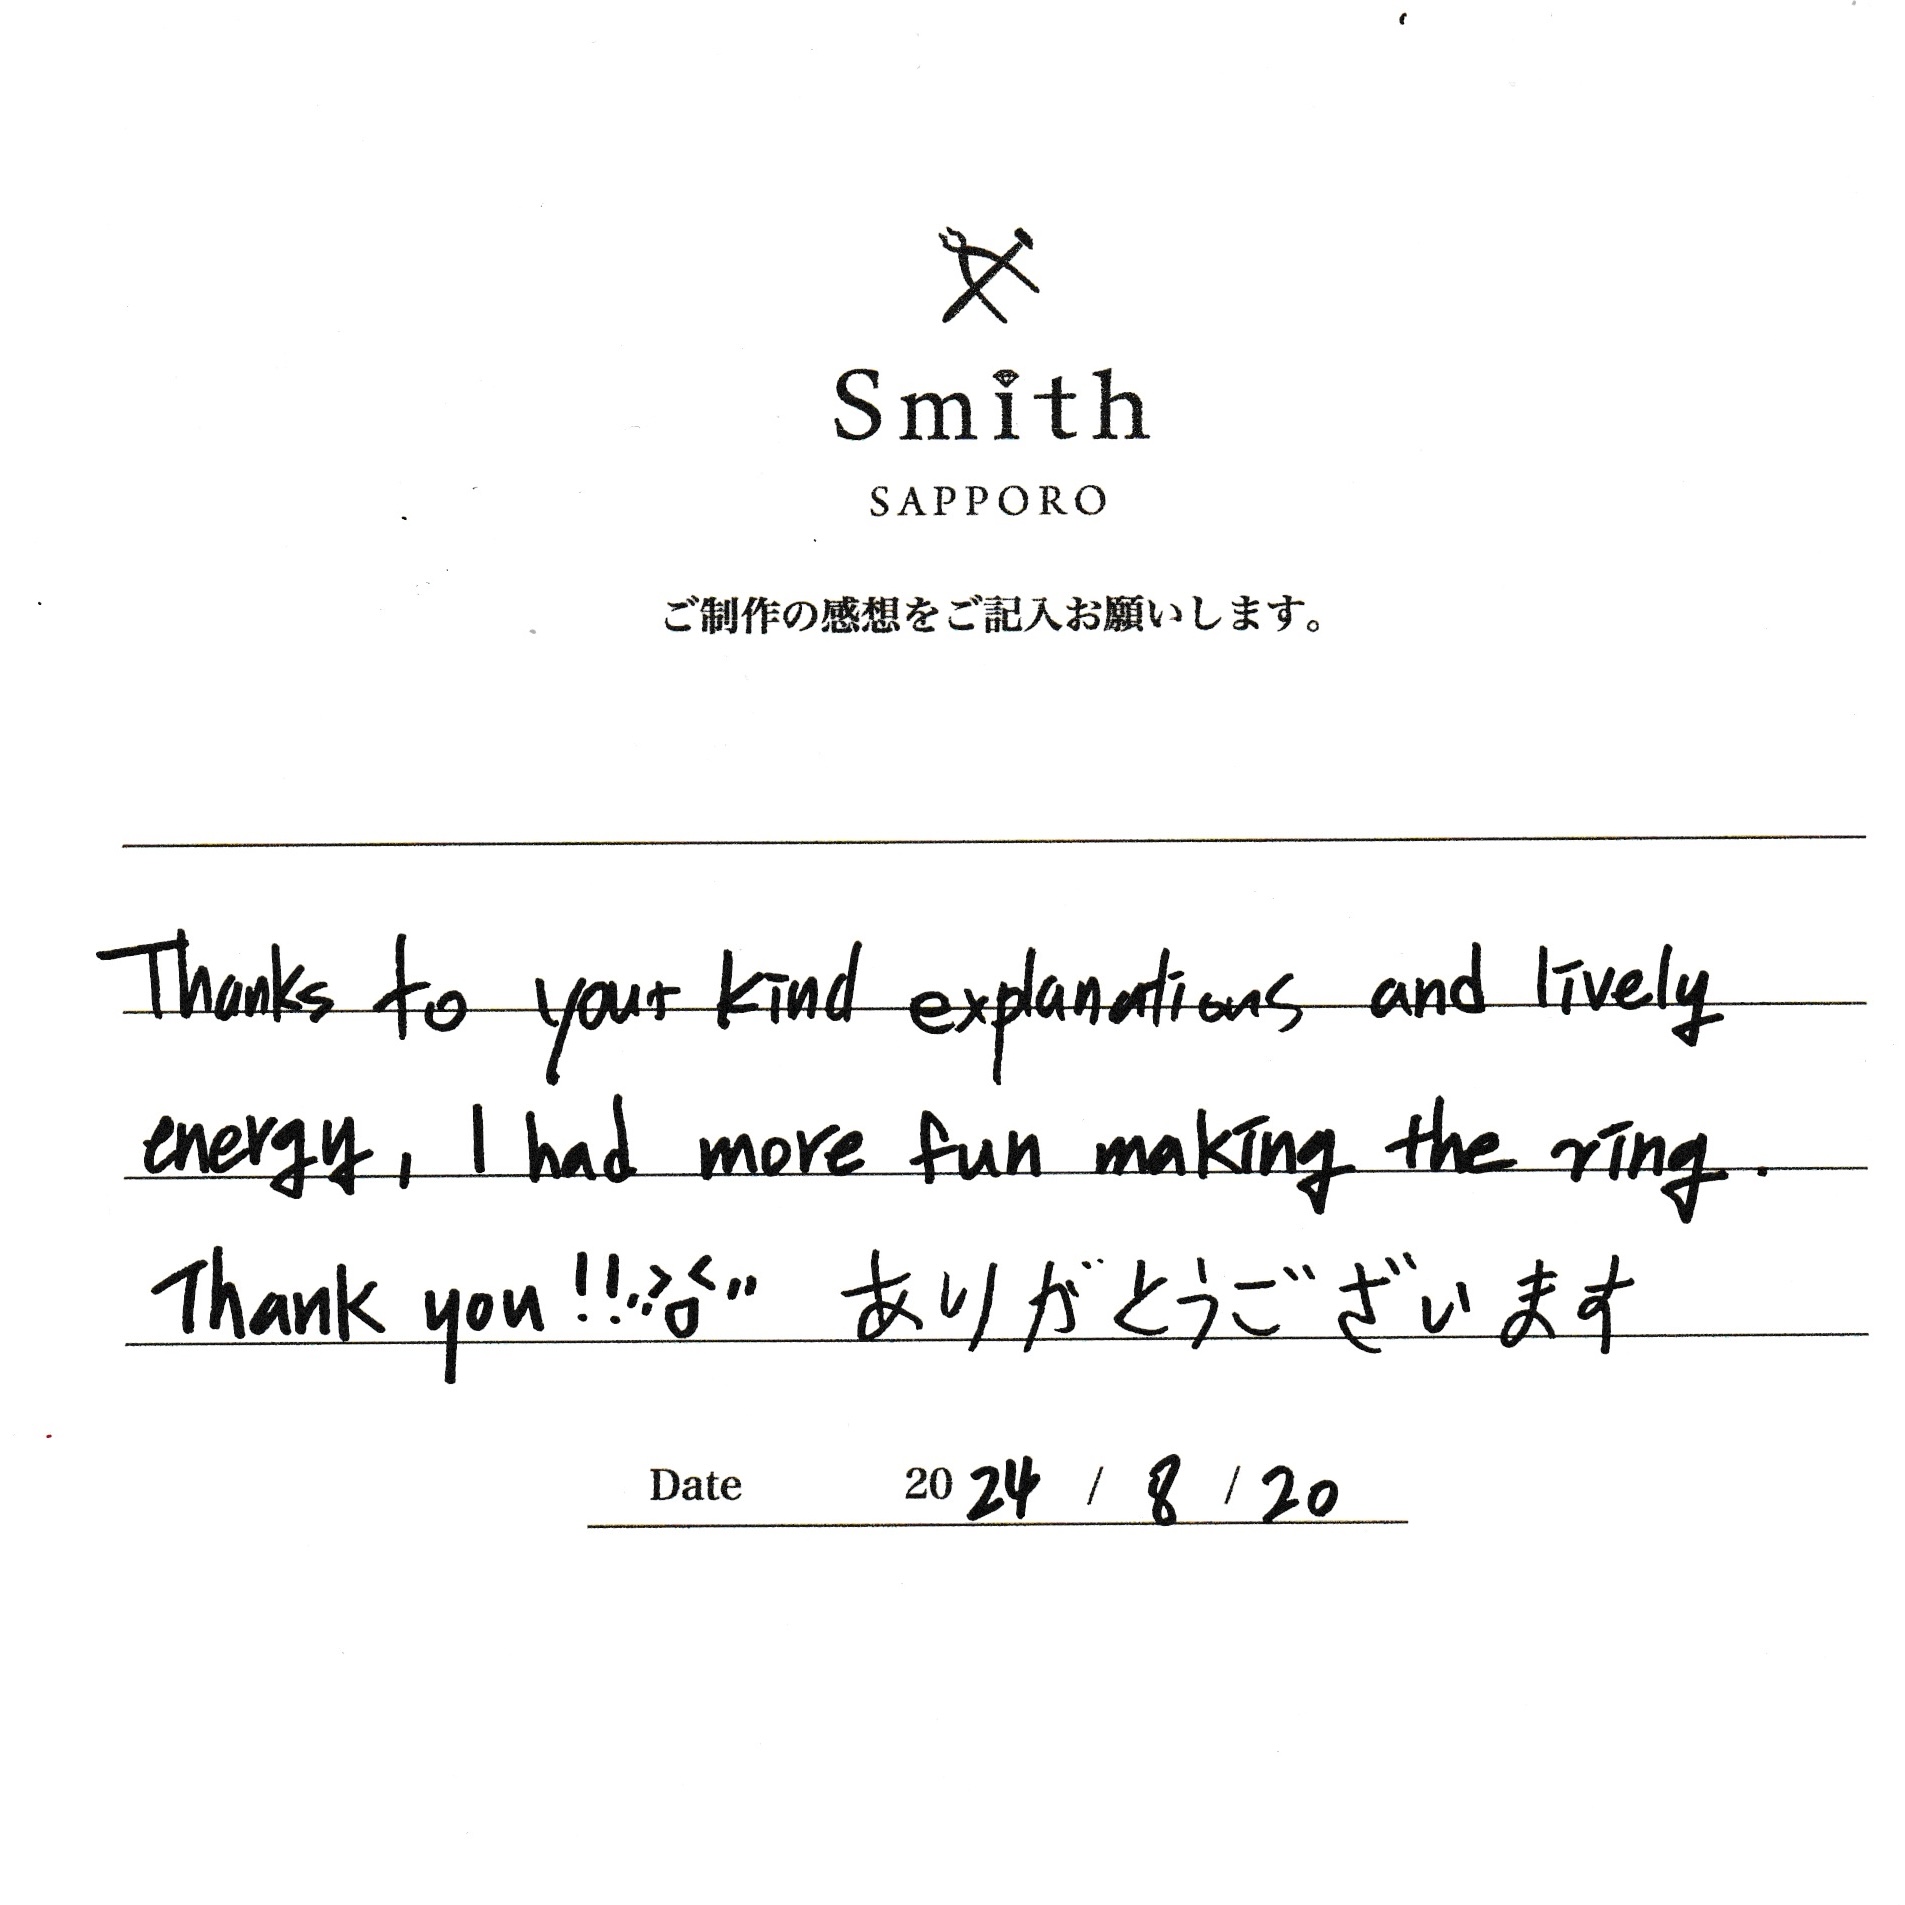 Smith
SAPPORO
ご制作の感想をご記入お願いします。
Thanks to your kind explanations and lively
energy, I had more fun making the ring.
Thank you!! ありがとうございます
Date 2024 / 8 / 20